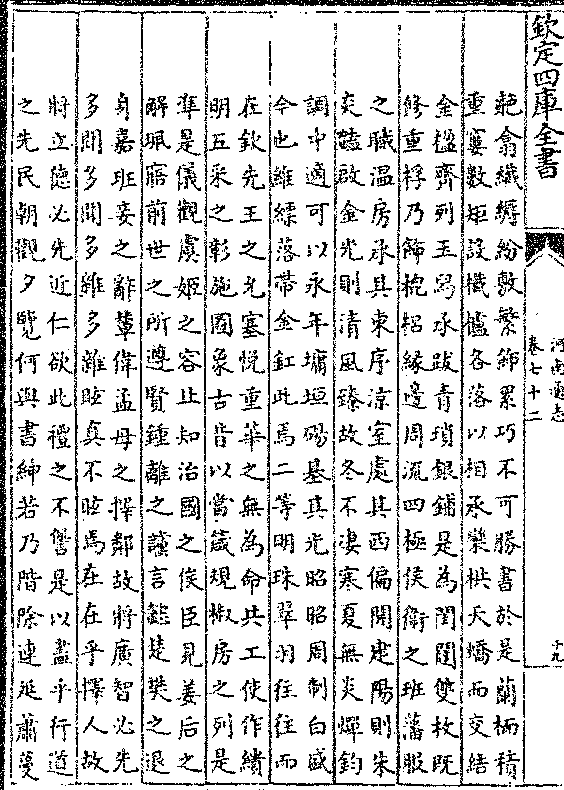 欽定四庫全書
河南通志
卷七十二
十九
赩翕纖縟紛敷繁飾累巧不可勝書於是蘭栭積
重窶數矩設櫼櫨各落以相承欒栱夭蟜而交結
金楹齊列玉舄承跋青瑣銀鋪是為閨闥雙枚既
修重桴乃飾㮰梠緣邊周流四極侯衛之班藩服
之職温房承其東序凉室處其西偏開建陽則朱
炎豔啟金光則清風臻故冬不凄寒夏無炎燀鈞
調中適可以永年墉垣碭基其光昭昭周制白盛
今也維縹落帶金釭此焉二等明珠翠羽往往而
在欽先王之允塞悦重華之無為命共工使作繢
明五采之彰施圖象古昔以當箴規椒房之列是
凖是儀觀虞姬之容止知治國之佞臣見姜后之
解珮寤前世之所遵賢鍾離之讜言懿楚樊之退
身嘉班妾之辭輦偉孟母之擇鄰故將廣智必先
多聞多聞多雜多雜眩真不眩焉在在乎擇人故
將立德必先近仁欲此禮之不諐是以盡乎行道
之先民朝觀夕覽何與書紳若乃階除連延蕭蔓